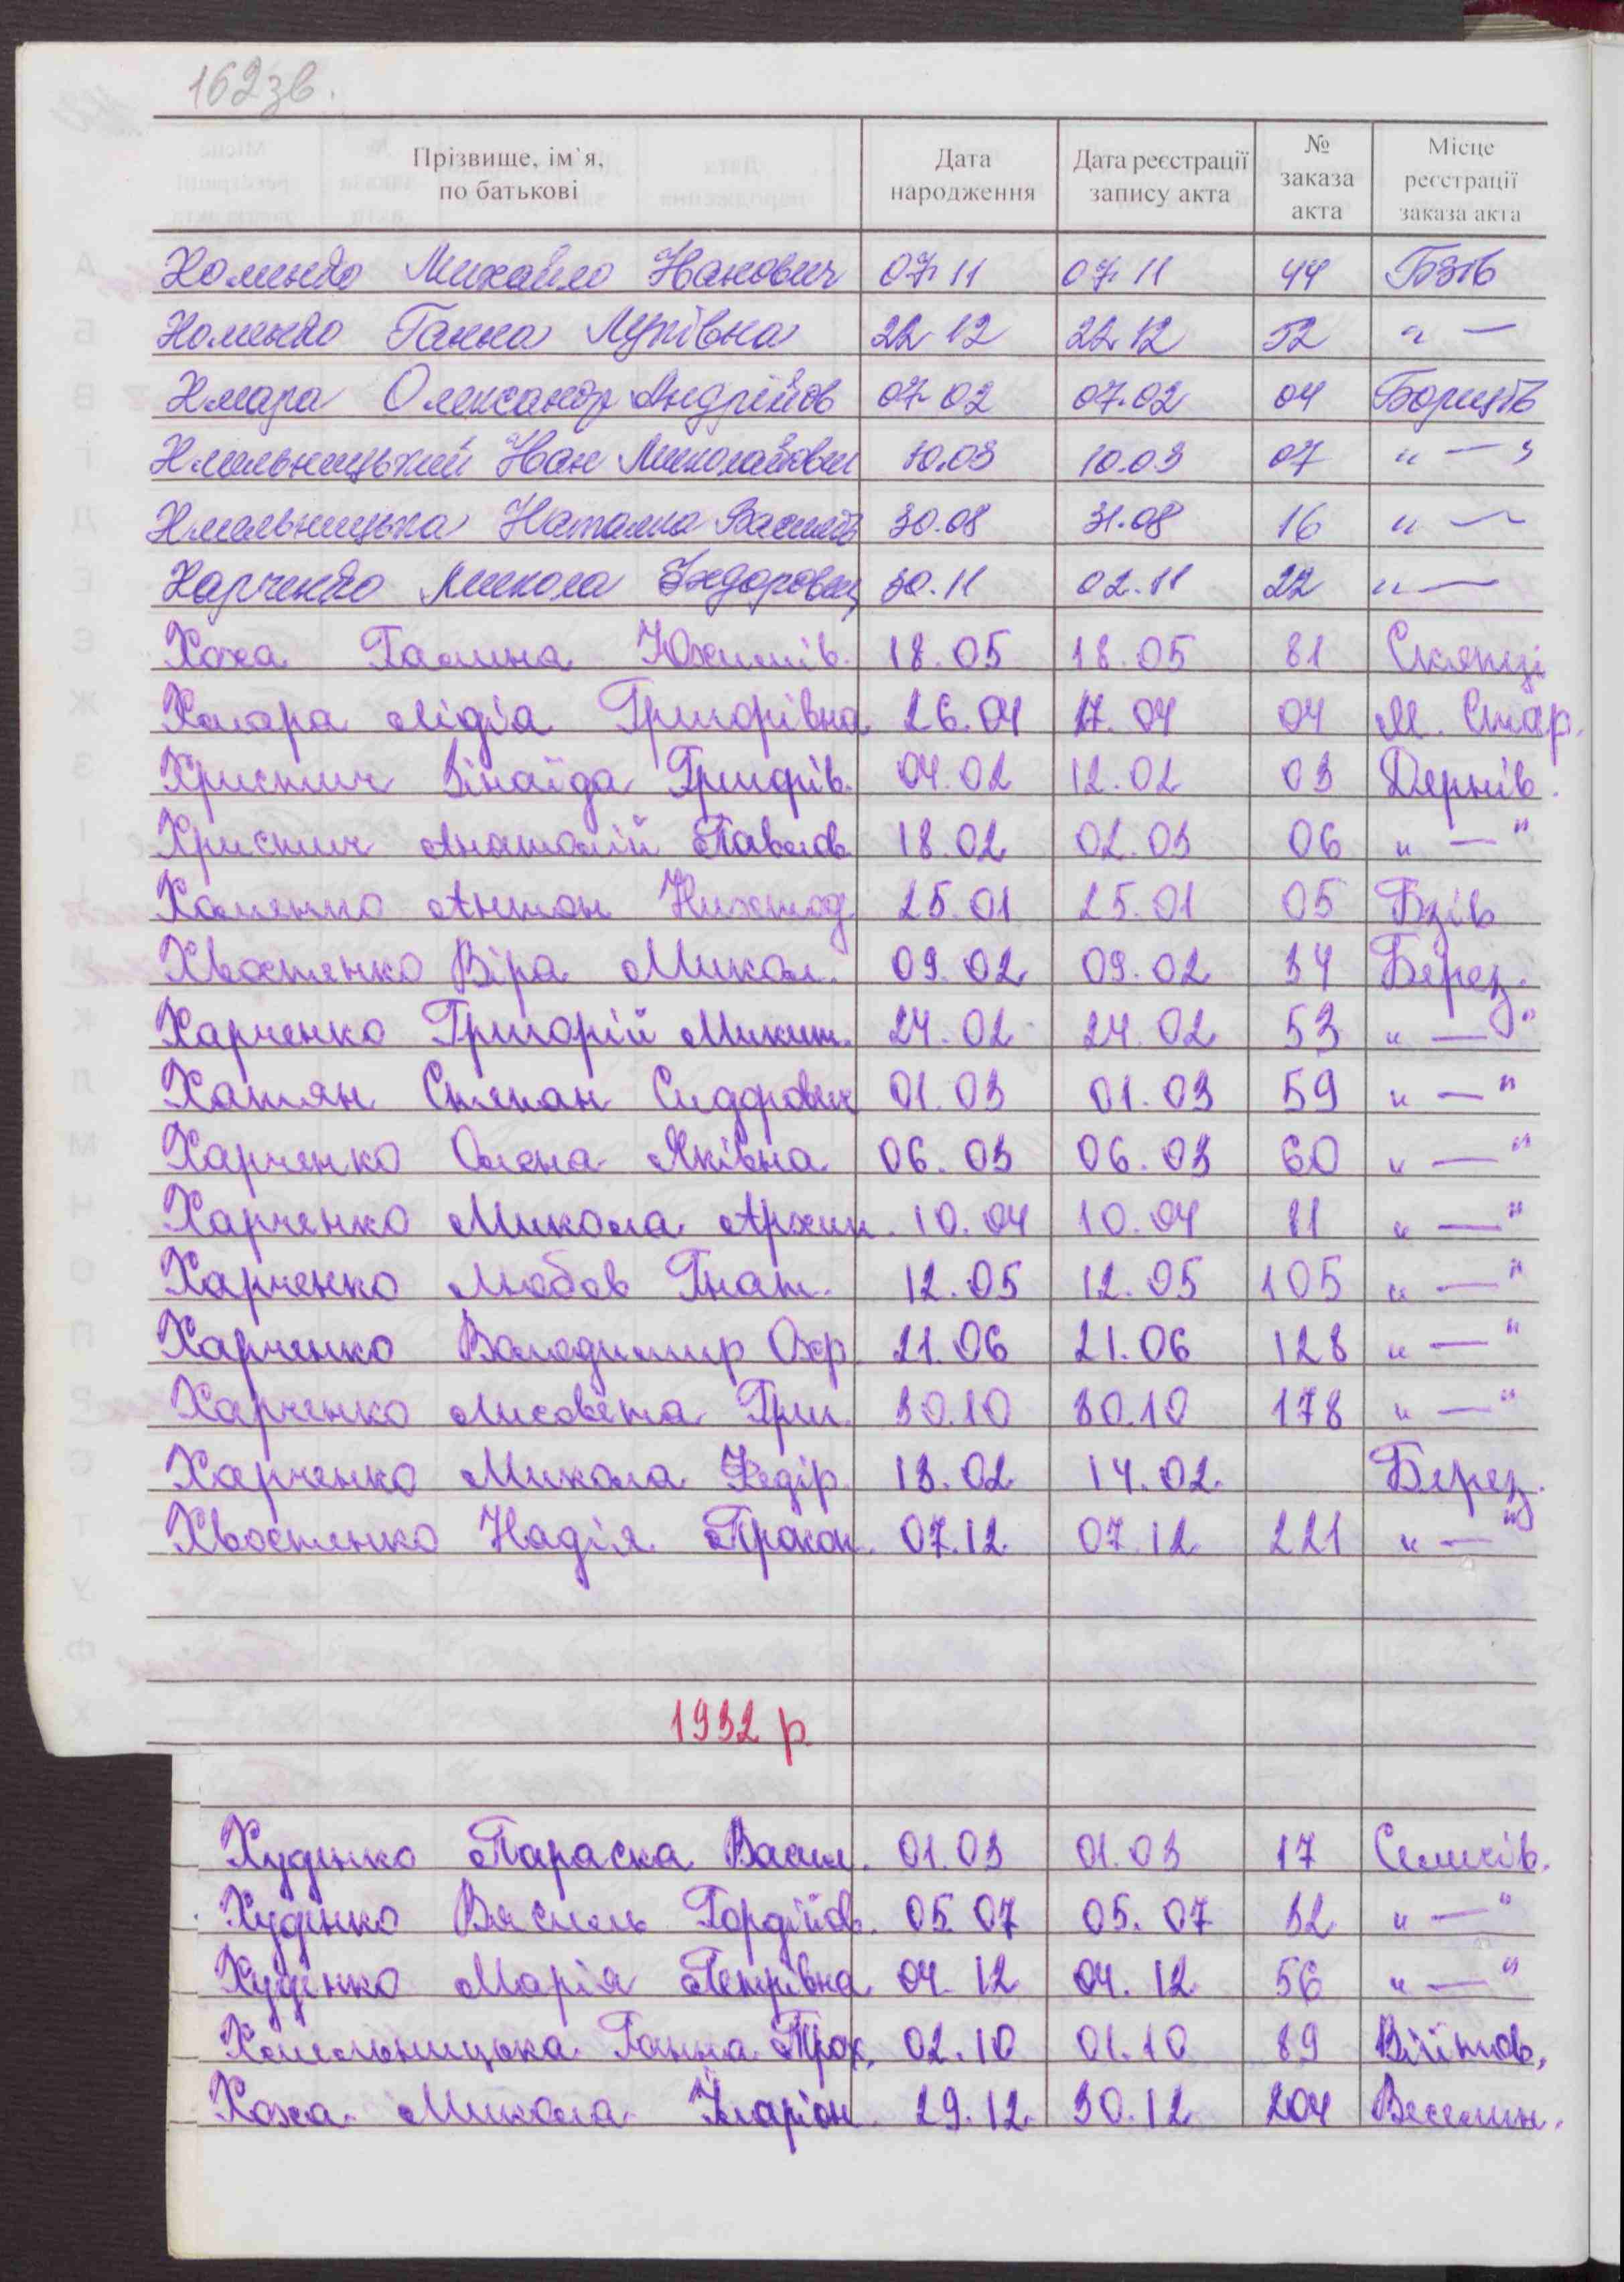 162зв.
Прізвище, ім'я, по батькові | Дата народження | Дата реєстрації запису акта | № заказа акта | Місце реєстрації заказа акта
Хоменко Михайло Іванович 07.11 07.11 44 Бзів
Хоменко Ганна Лупівна 22.12 22.12 52 " —
Хмара Олександр Андрійов 07.02 07.02 04 Борщів
Хмельницький Іван Миколайович 10.03 10.03 07 " — "
Хмельницька Наталка Василів 30.08 31.08 16 " —
Харченко Микола Федорович 30.11 02.11 22 " —
Хоха Галина Юхимів. 18.05 18.05 81 Скопці
Хмара Лідія Григорівна 26.04 27.04 04 М. Стар.
Христич Зінаїда Григорів. 04.02 12.02 03 Дернів.
Христич Анатолій Павлов. 18.02 02.03 06 " — "
Хоменко Антон 25.01 25.01 05 Бзів
Хвостенко Віра Микол. 09.02 09.02 34 Берез.
Харченко Григорій Микит. 24.02 24.02 53 " — "
Хатян Степан Сидорович 01.03 01.03 59 " — "
Харченко Олена Яківна 06.03 06.03 60 " — "
Харченко Микола Архип. 10.04 10.04 81 " — "
Харченко Любов Гнат. 12.05 12.05 105 " — "
Харченко Володимир Охр. 21.06 21.06 128 " — "
Харченко Лисовета Григ. 30.10 30.10 178 " — "
Харченко Микола Федір. 13.02 14.02. Берез.
Хвостенко Надія Прокоп. 07.12 07.12 221 " — "
1932 р.
Худенко Параска Васил. 01.03 01.03 17 Селичів.
Худенко Василь Гордійов. 05.07 05.07 32 " — "
Худенко Марія Петрівна 04.12 04.12 56 " — "
Хмельницька Ганна Прок. 02.10 01.10 89 Війтов.
Хоха Микола Іларіон. 29.12. 30.12 204 Веселин.